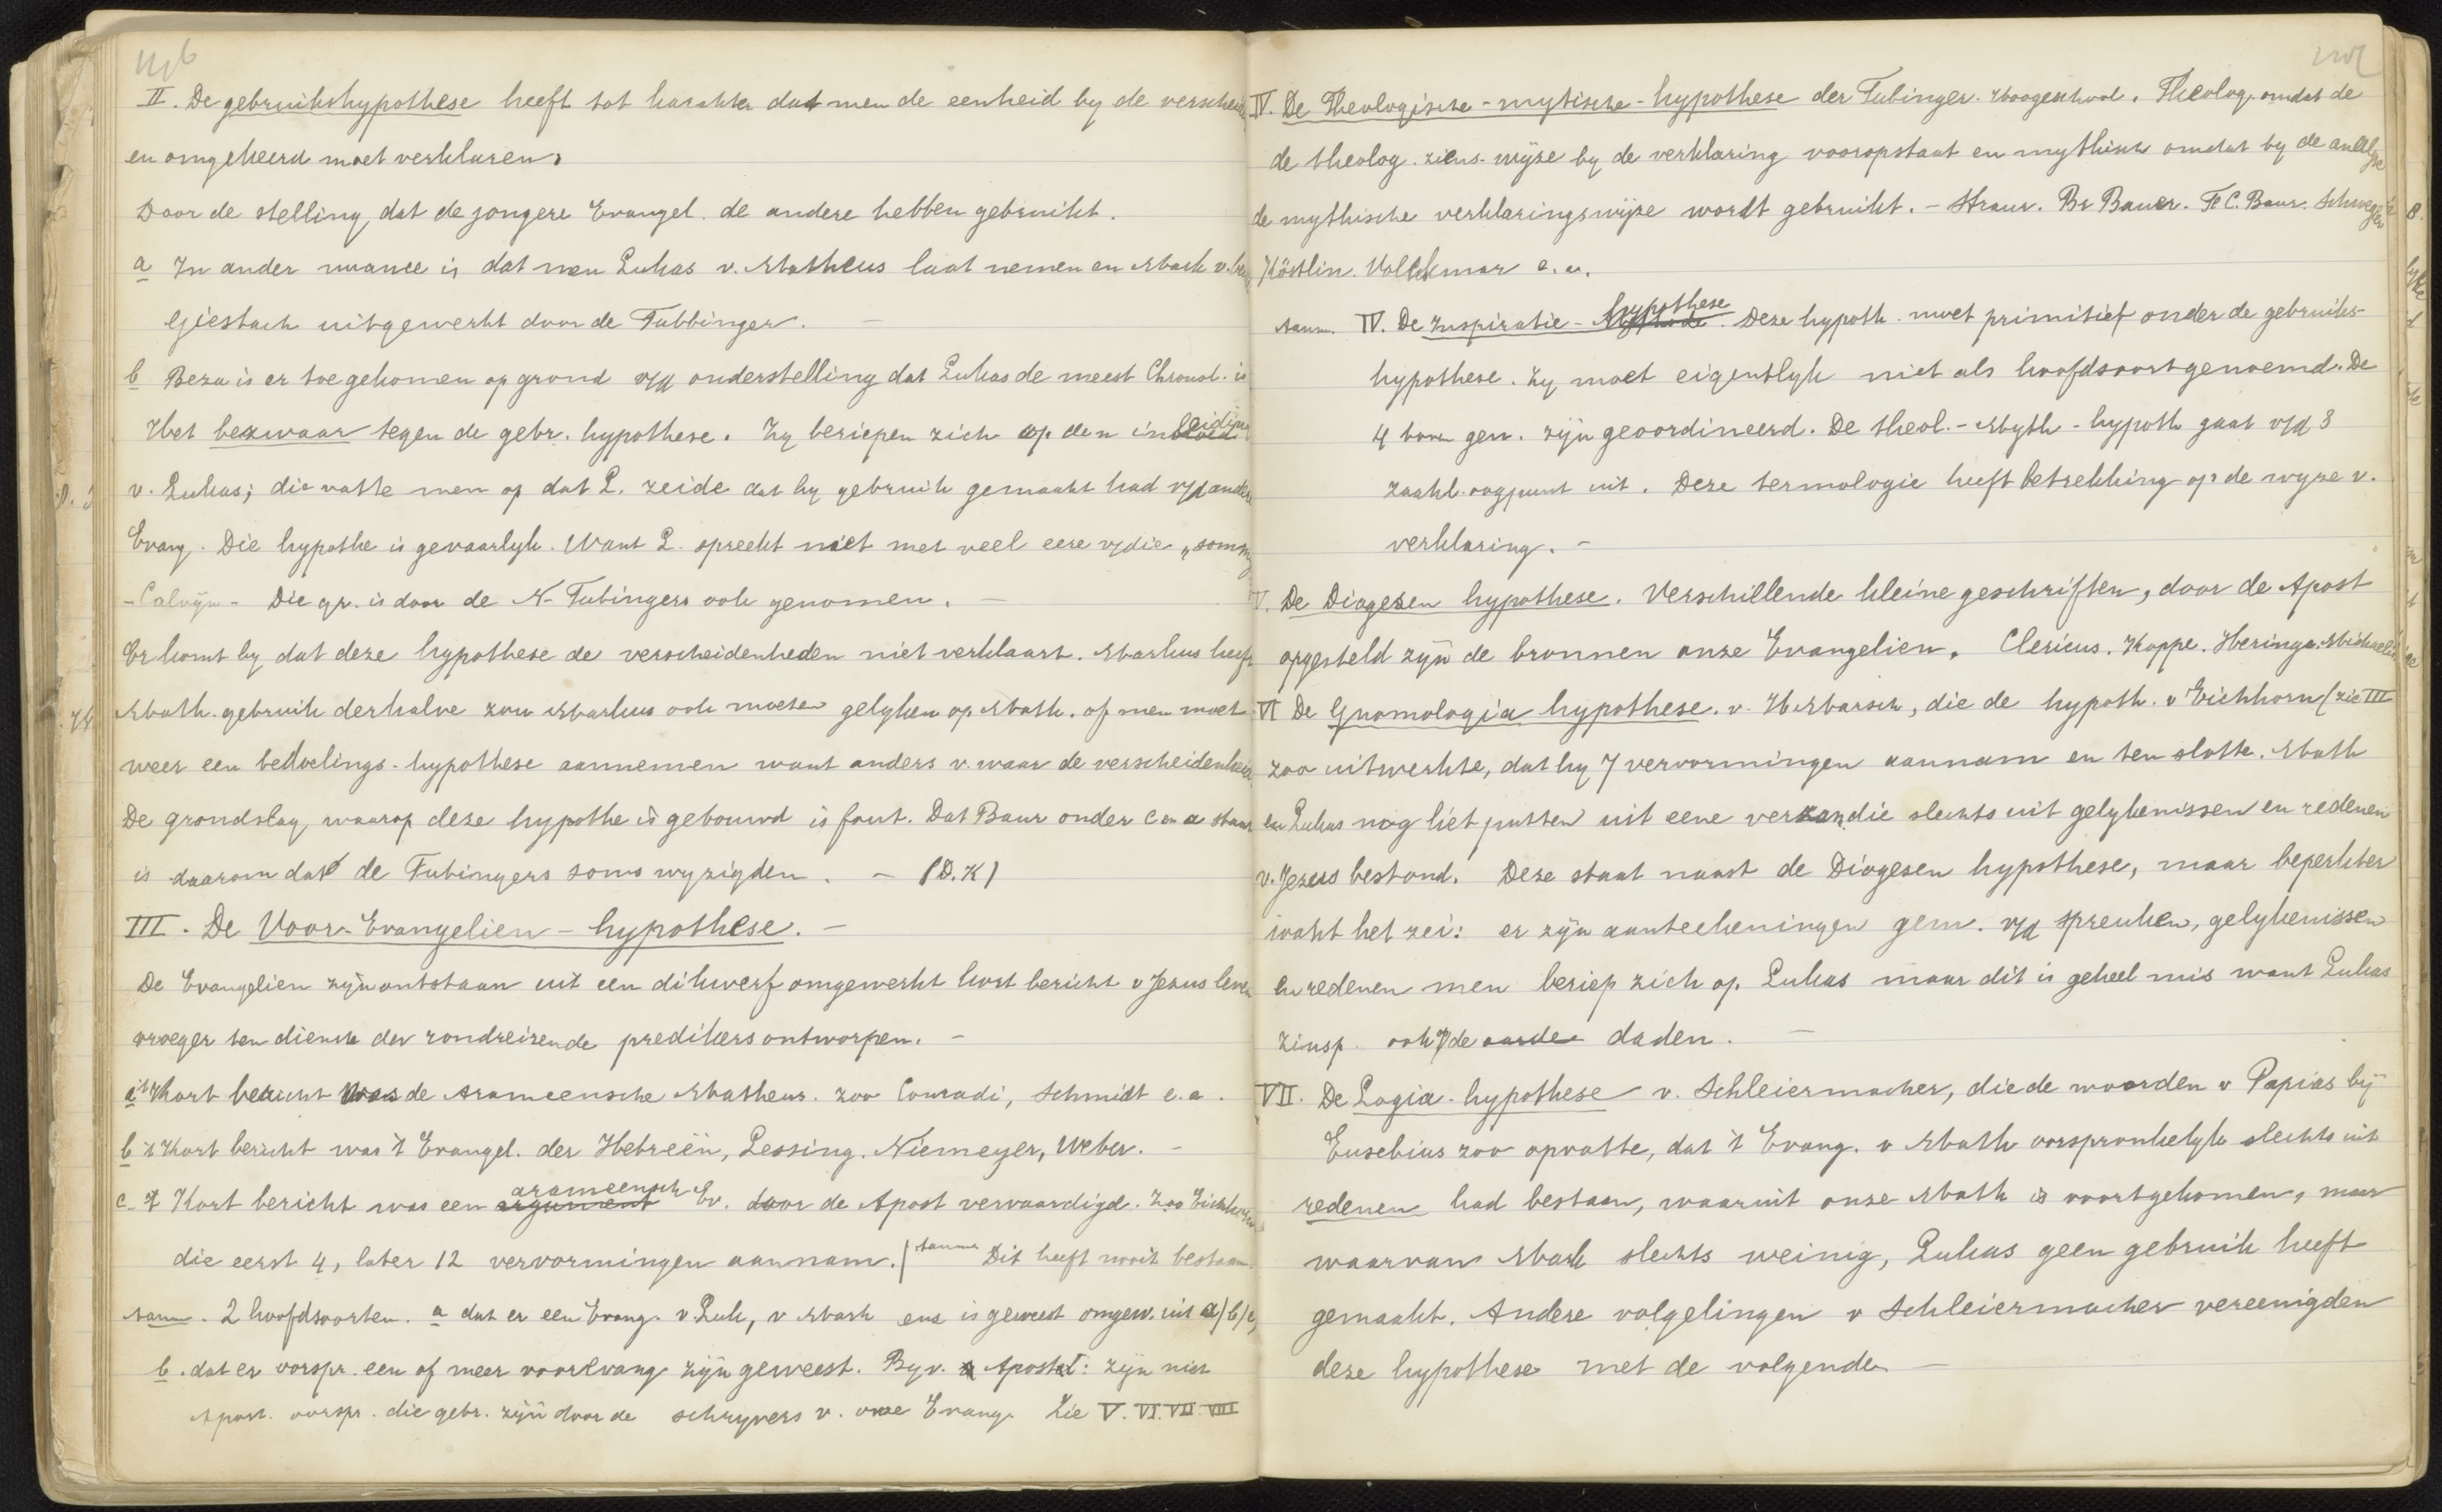 II. De gebruikshypothese heeft tot karakter dat men de eenheid by de verscheid
en omgekeerd moet verklaren.
Door de stelling, dat de jongere Evangel. de andere hebben gebruikt.
a In ander nuance is dat men Lukas v. Mattheus laat nemen en Mark v. bei
Giesbach uitgewerkt door de Tubbinger. —
b Beza is er toe gekomen op grond v/d onderstelling dat Lukas de meest Chronol. is
Het bezwaar tegen de gebr. hypothese. Zy beriepen zich op den inleiding
v. Lukas; die vatte men op dat L. zeide dat hy gebruik gemaakt had v/d andere
Evang. Die hypothe is gevaarlyk. Want L. spreekt niet met veel eere v/die „somm
- Calvyn - Die gr. is door de N-Tubingers ook genomen. —
Er komt by dat deze hypothese de verscheidenheden niet verklaart. Markus heeft
Math. gebruik derhalve zou Markus ook moeten gelyken op Math. of men moet
weer een bedoelings-hypothese aannemen want anders v. waar de verscheidenhe
De grondslag, waarop deze hypothe is gebouwd is fout. Dat Baur onder c en a staat
is daarom dat de Tubingers soms wyzigden. — (D.K)
III. De Voor-Evangelien-hypothese. —
De Evangelien zyn ontstaan uit een dikwerf omgewerkt kort bericht v Jezus leven
vroeger ten dienste der rondreizende predikers ontworpen. —
a 't Kort bericht was de Arameensche Matheus. zoo Conradi, Schmidt e.a.
b 't Kort bericht was 't Evangel. der Hebreën, Lessing. Niemeyer, Weber. —
c. 't Kort bericht was een argument arameensch Ev. door de Apost vervaardigd. Zoo Eichhorn
die eerst 4, later 12 vervormingen aannam. | Dit heeft nooit bestaan.
aanm. 2 hoofdsoorten. a dat er een Evang. v. Luk, v Mark enz is geweest omgew. uit a/b/c,
b. dat er oorspr. een of meer voorevang zyn geweest. By v. Apostel: zyn niet
Apost. oorspr. die gebr. zyn door de schryvers v. onze Evang. Zie V. VI. VII. VIII
IV. De Theologische-mytische-hypothese der Tubinger. Hoogeschool. Theolog. omdat de
de theolog. ziens-wyze by de verklaring vooropstaat en mythisch omdat by de analyse
de mythische verklaringswyze wordt gebruikt. - Straus. Br Bauer. F C. Baur. Schwegler
Köstlin. Volckmar e. a.
aanm. IV. De Inspiratie - Methode hypothese. Deze hypoth. moet primitief onder de gebruiks-
hypothese. Zy moet eigentlyk niet als hoofdsoort genoemd. De
4 boven gen. zyn geoordineerd. De theol.-Myth-hypoth gaat v/d 3
zaakl. oogpunt uit. Deze termologie heeft betrekking op de wyze v.
verklaring. —
V. De Diegesen hypothese. Verschillende kleine geschriften, door de Apost
opgesteld zyn de bronnen onze Evangelien. Clericus. Koppe. Heringa. Michaelis
VI De Gnomologia hypothese. v. H. Marsch, die de hypoth. v Eichhorn (zie III
zoo uitwerkte, dat hy 7 vervormingen aannam en ten slotte. Math
en Lukas nog liet putten uit eene verzam. die slechts uit gelykenissen en redenen
v. Jezus bestond. Deze staat naast de Diegesen hypothese, maar beperkter
want het zei: er zyn aanteekeningen gem. v/d spreuken, gelykenissen
en redenen men beriep zich op Lukas maar dit is geheel mis want Lukas
zinsp. ook v/de aarde daden. —
VII. De Logia-hypothese v. Schleiermacher, die de woorden v Papias by
Eusebius zoo opvatte, dat 't Evang. v Math oorspronkelyk slechts uit
redenen had bestaan, waaruit onze Math is voortgekomen, maar
waarvan Mark slechts weinig, Lukas geen gebruik heeft
gemaakt. Andere volgelingen v Schleiermacher vereenigden
deze hypothese met de volgende —